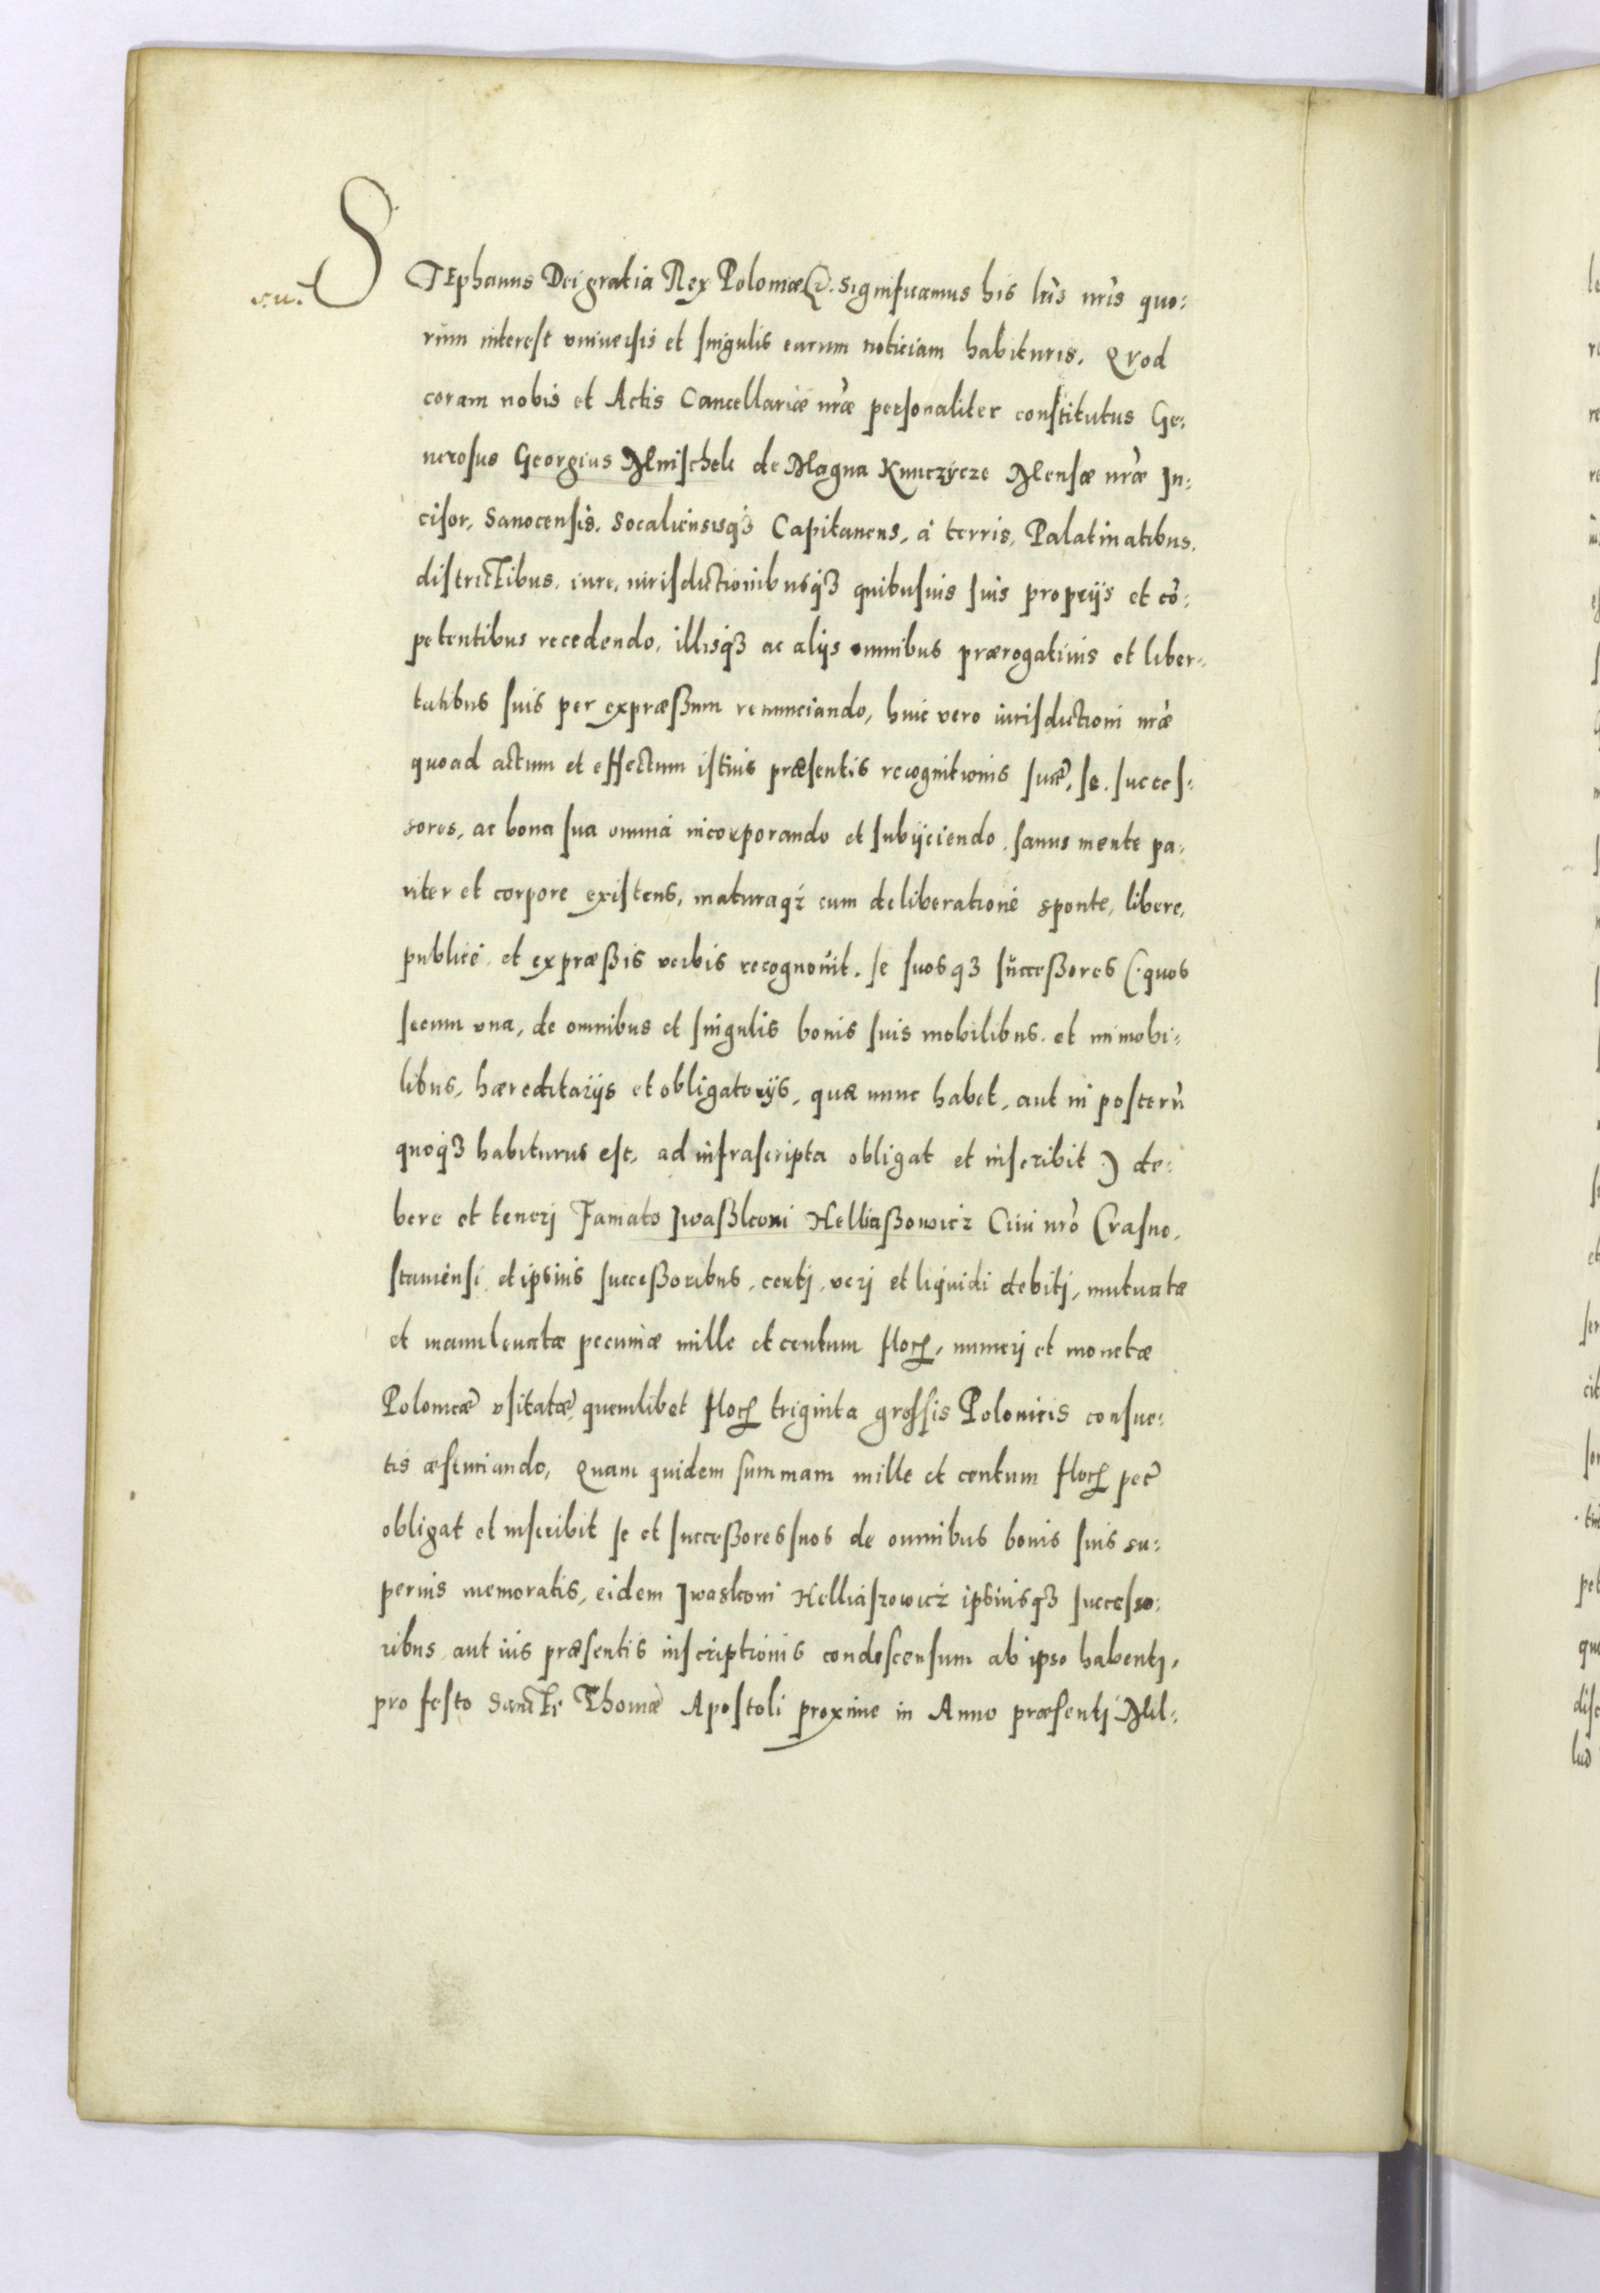 STEphanus Dei gratia Rex Poloniæ &. Significamus his lr̃is nr̃is quo:
rum interest vniuersis et singulis earum noticiam habituris. Quod
coram nobis et Actis Cancellariæ nr̃æ personaliter constitutus Ge:
nerosus Georgius Mnischek de Magna Kunczycze Mensæ nr̃æ In:
cisor, Sanocensis, Socaliensisq3 Capitaneus, á terris, Palatinatibus,
districtibus, iure, iurisdictionibusq3 quibusuis suis proprijs et cõ:
petentibus recedendo, illisq3 ac alijs omnibus prærogatiuis et liber:
tatibus suis per expræßum renunciando, huic vero iurisdictioni nr̃æ
quoad actum et effectum istius præsentis recognitionis suæ, se, succes:
sores, ac bona sua omnia incorporando et subijciendo, sanus mente pa:
riter et corpore existens, maturaq3 cum deliberatione sponte, libere,
publicè, et expræßis verbis recognouit, se suosq3 succeßores (:quos
secum vna, de omnibus et singulis bonis suis mobilibus, et immobi:
libus, hæreditarijs et obligatorijs, quæ nunc habet, aut in posterũ
quoq3 habiturus est, ad infrascripta obligat et inscribit:) de:
bere et tenerj Famato Jwaßkoni Helliaßowicz Ciui nr̃o Crasno:
stauiensi et ipsius succeßoribus, certj, verj et liquidi debitj, mutuatæ
et manuleuatæ pecuniæ mille et centum floꝝ, numerj et monetæ
Polonicæ vsitatæ, quemlibet floꝝ triginta grossis Polonicis consue:
tis æstimando, Quam quidem summam mille et centum floꝝ pec̃
obligat et inscribit se et succeßores suos de omnibus bonis suis su:
perius memoratis, eidem Jwaskoni Helliaszowicz ipsiusq3 successo:
ribus, aut ius præsentis inscriptionis condescensum ab ipso habentj,
pro festo Sancti Thomæ Apostoli proxime in Anno præsentj Mil: